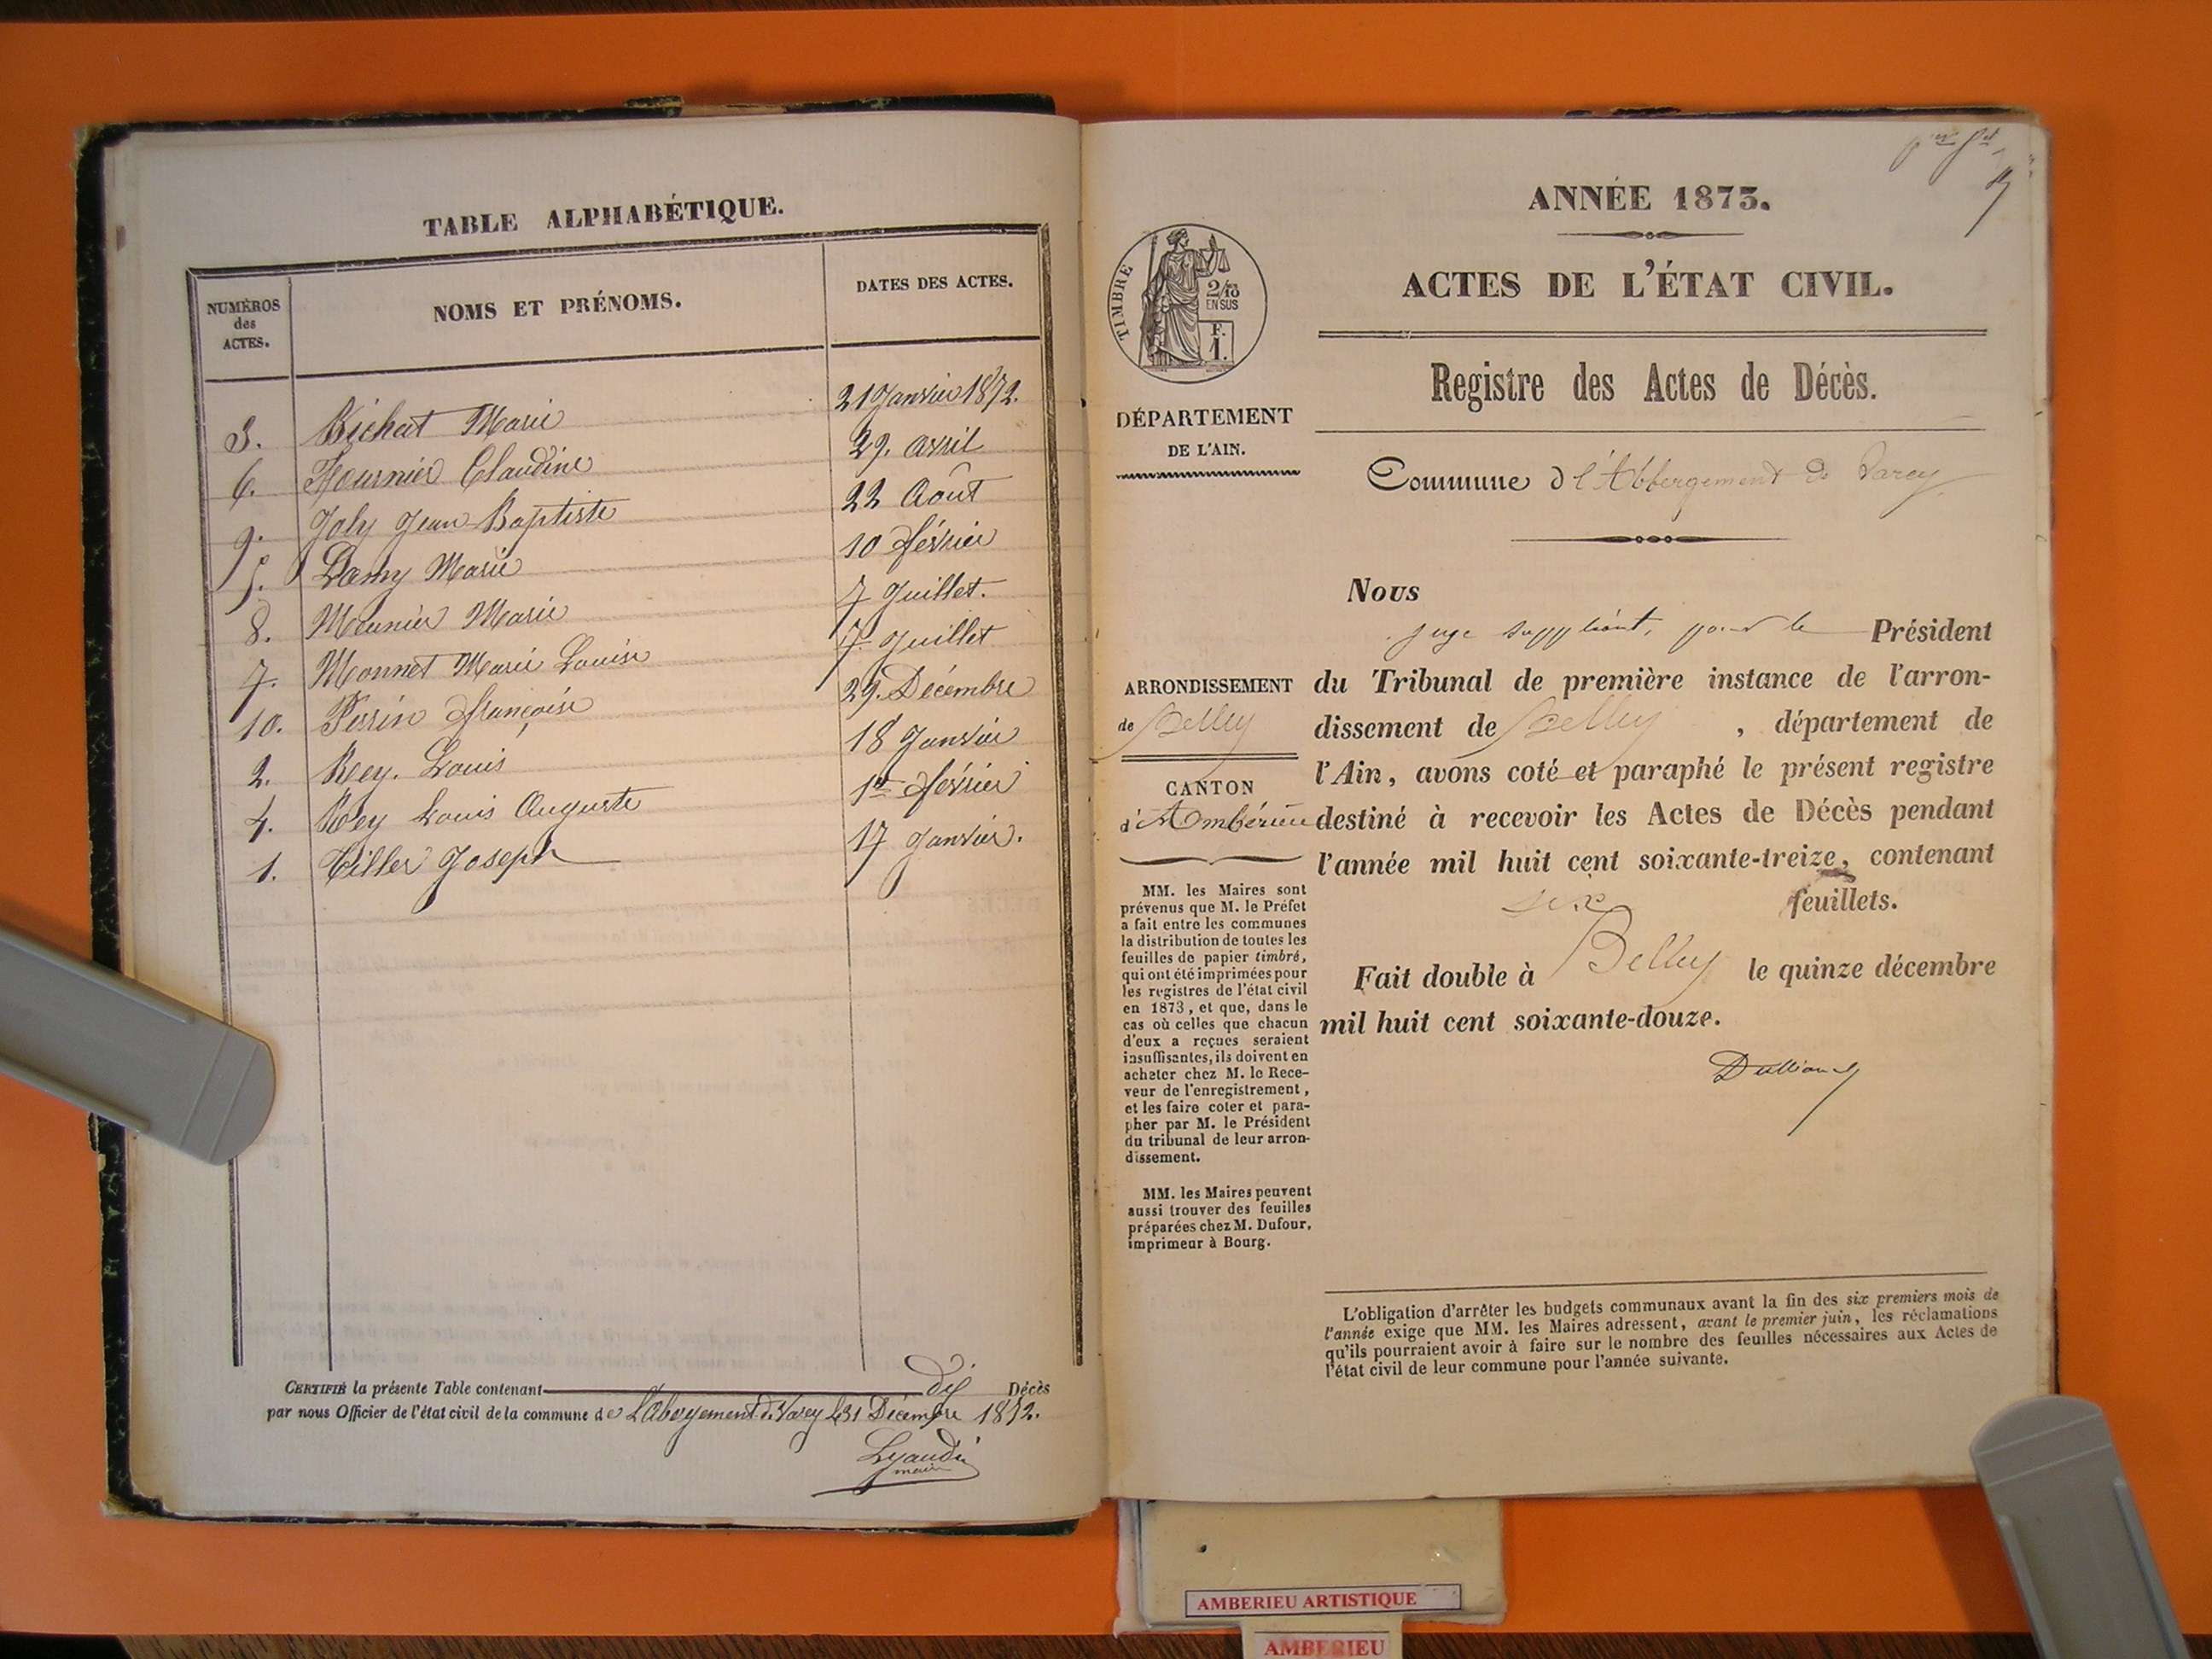 TABLE ALPHABÉTIQUE.
NUMÉROS des ACTES.
NOMS ET PRÉNOMS.
DATES DES ACTES.
3. Bichat Marie 21 Janvier 1872.
6. Fournier Claudine 29. avril
9. Joly Jean-Baptiste 22 Août
5. Lamy Marie 10 février
8. Meunier Marie 7 Juillet.
7. Monnet Marie Louise 7 Juillet
10. Perrin françoise 29. Décembre
2. Rey. Louis 18 Janvier
4. Rey Louis Auguste 1er février
1. Tiller Joseph 17 Janvier.
CERTIFIÉ la présente Table contenant dix Décès
par nous Officier de l'état civil de la commune de L'Abergement de Varey le 31 Décembre 1872.
maire
ANNÉE 1873.
ACTES DE L'ÉTAT CIVIL.
TIMBRE
2/10
EN SUS
F.
1.
Registre des Actes de Décès.
DÉPARTEMENT
DE L'AIN.
Commune de l'Abbergement de Varey
Nous
juge suppléant, pour le Président
ARRONDISSEMENT
de Belley
du Tribunal de première instance de l'arron-
dissement de Belley, département de
l'Ain, avons coté et paraphé le présent registre
CANTON
d'Ambérieu
destiné à recevoir les Actes de Décès pendant
l'année mil huit cent soixante-treize, contenant
six feuillets.
Fait double à Belley le quinze décembre
mil huit cent soixante-douze.
MM. les Maires sont
prévenus que M. le Préfet
a fait entre les communes
la distribution de toutes les
feuilles de papier timbré,
qui ont été imprimées pour
les registres de l'état civil
en 1873, et que, dans le
cas où celles que chacun
d'eux a reçues seraient
insuffisantes, ils doivent en
acheter chez M. le Rece-
veur de l'enregistrement,
et les faire coter et para-
pher par M. le Président
du tribunal de leur arron-
dissement.
MM. les Maires peuvent
aussi trouver des feuilles
préparées chez M. Dufour,
imprimeur à Bourg.
L'obligation d'arrêter les budgets communaux avant la fin des six premiers mois de
l'année exige que MM. les Maires adressent, avant le premier juin, les réclamations
qu'ils pourraient avoir à faire sur le nombre des feuilles nécessaires aux Actes de
l'état civil de leur commune pour l'année suivante.
AMBERIEU ARTISTIQUE
AMBERIEU